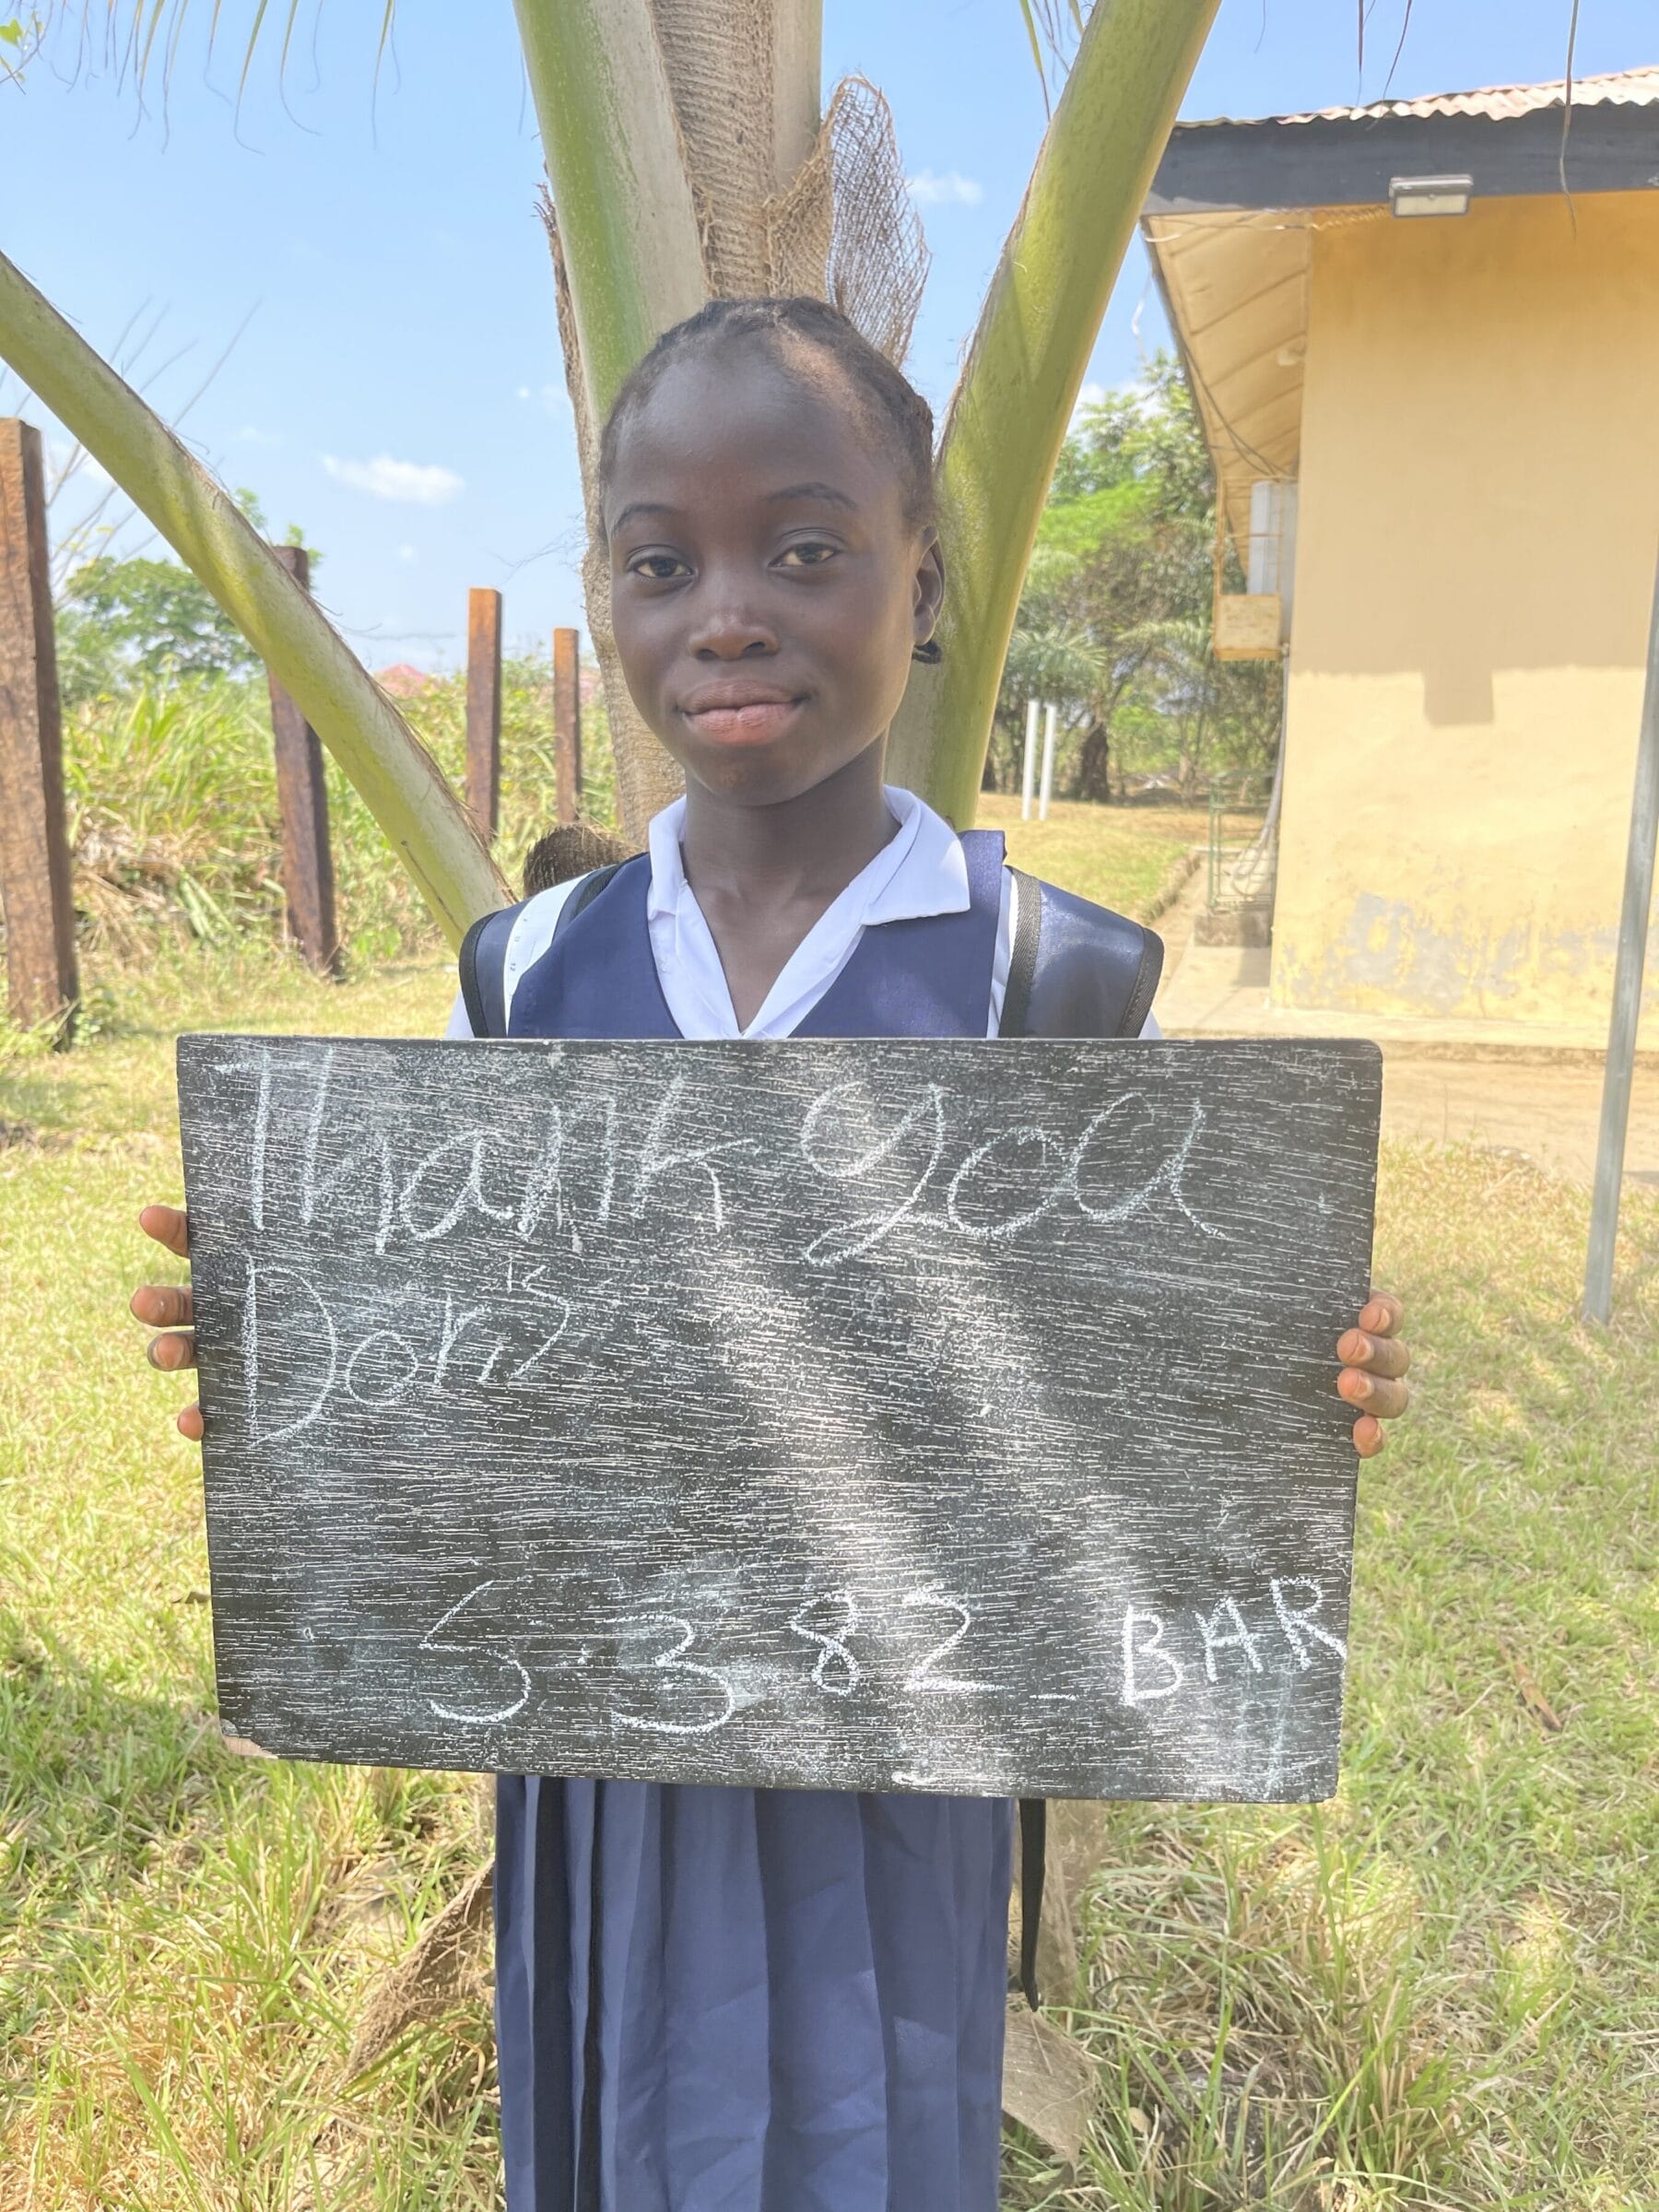 Thank you
Doris
5382 - BAR